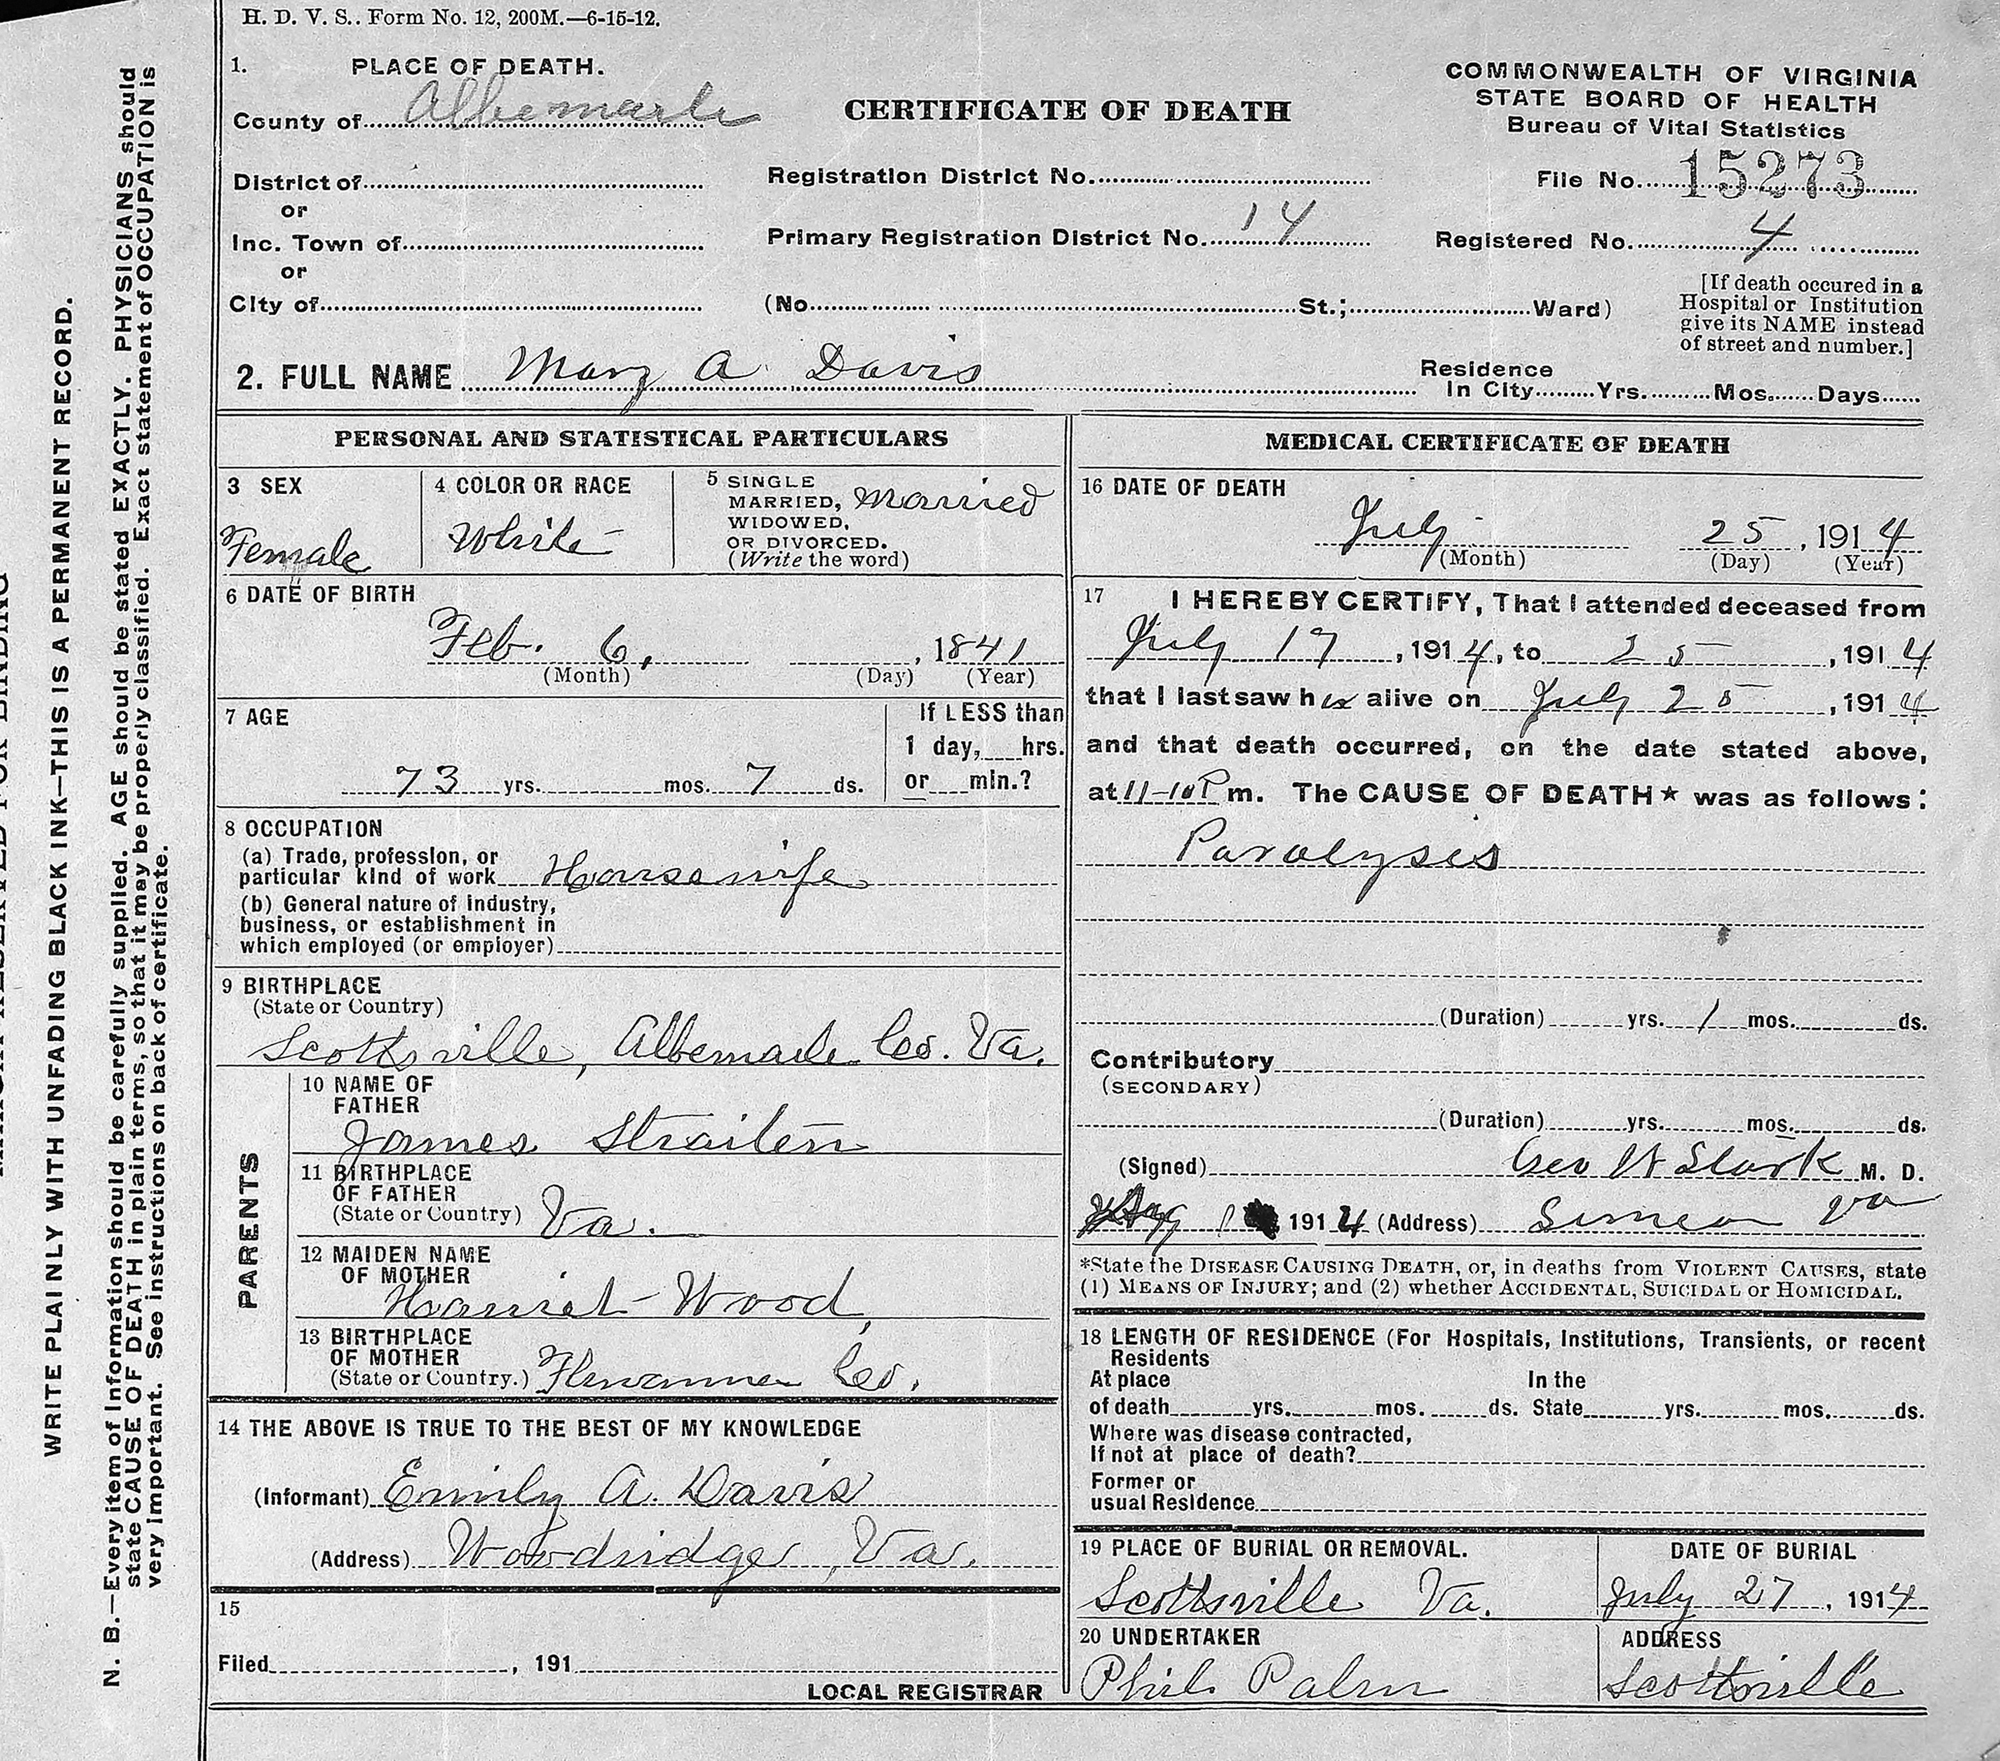 H. D. V. S.. Form No. 12, 200M.—6-15-12.
1. PLACE OF DEATH.
County of Albemarle
District of
or
Inc. Town of
or
City of
CERTIFICATE OF DEATH
COMMONWEALTH OF VIRGINIA
STATE BOARD OF HEALTH
Bureau of Vital Statistics
Registration District No.
File No. 15273
Primary Registration District No. 14
Registered No. 4
(No. St.; Ward)
[If death occured in a
Hospital or Institution
give its NAME instead
of street and number.]
2. FULL NAME Mary A. Davis
Residence
In City Yrs. Mos. Days
PERSONAL AND STATISTICAL PARTICULARS
3 SEX
Female
4 COLOR OR RACE
White
5 SINGLE
MARRIED, Married
WIDOWED,
OR DIVORCED.
(Write the word)
6 DATE OF BIRTH
Feb. 6, , 1841
(Month) (Day) (Year)
7 AGE
73 yrs. mos. 7 ds.
If LESS than
1 day, hrs.
or min.?
8 OCCUPATION
(a) Trade, profession, or
particular kind of work Housewife
(b) General nature of industry,
business, or establishment in
which employed (or employer)
9 BIRTHPLACE
(State or Country)
Scottsville, Albemarle Co. Va.
PARENTS
10 NAME OF
FATHER
James Straiten
11 BIRTHPLACE
OF FATHER
(State or Country) Va.
12 MAIDEN NAME
OF MOTHER
Harriet Wood
13 BIRTHPLACE
OF MOTHER
(State or Country.) Fluvanna Co.
14 THE ABOVE IS TRUE TO THE BEST OF MY KNOWLEDGE
(Informant) Emily A. Davis
(Address) Woodridge, Va.
15
Filed , 191
LOCAL REGISTRAR
MEDICAL CERTIFICATE OF DEATH
16 DATE OF DEATH
July 25, 1914
(Month) (Day) (Year)
17 I HEREBY CERTIFY, That I attended deceased from
July 17, 1914, to 25, 1914
that I last saw her alive on July 25, 1914
and that death occurred, on the date stated above,
at 11-10P m. The CAUSE OF DEATH★ was as follows:
Paralysis
(Duration) yrs. 1 mos. ds.
Contributory
(SECONDARY)
(Duration) yrs. mos. ds.
(Signed) Geo W Stark M. D.
1914 (Address) Simeon Va
*State the DISEASE CAUSING DEATH, or, in deaths from VIOLENT CAUSES, state
(1) MEANS OF INJURY; and (2) whether ACCIDENTAL, SUICIDAL or HOMICIDAL.
18 LENGTH OF RESIDENCE (For Hospitals, Institutions, Transients, or recent
Residents
At place In the
of death yrs. mos. ds. State yrs. mos. ds.
Where was disease contracted,
If not at place of death?
Former or
usual Residence
19 PLACE OF BURIAL OR REMOVAL.
Scottsville Va.
DATE OF BURIAL
July 27, 1914
20 UNDERTAKER
Phil. Palm
ADDRESS
Scottsville
WRITE PLAINLY WITH UNFADING BLACK INK—THIS IS A PERMANENT RECORD.
N. B.—Every item of information should be carefully supplied. AGE should be stated EXACTLY. PHYSICIANS should
state CAUSE OF DEATH in plain terms, so that it may be properly classified. Exact statement of OCCUPATION is
very important. See instructions on back of certificate.